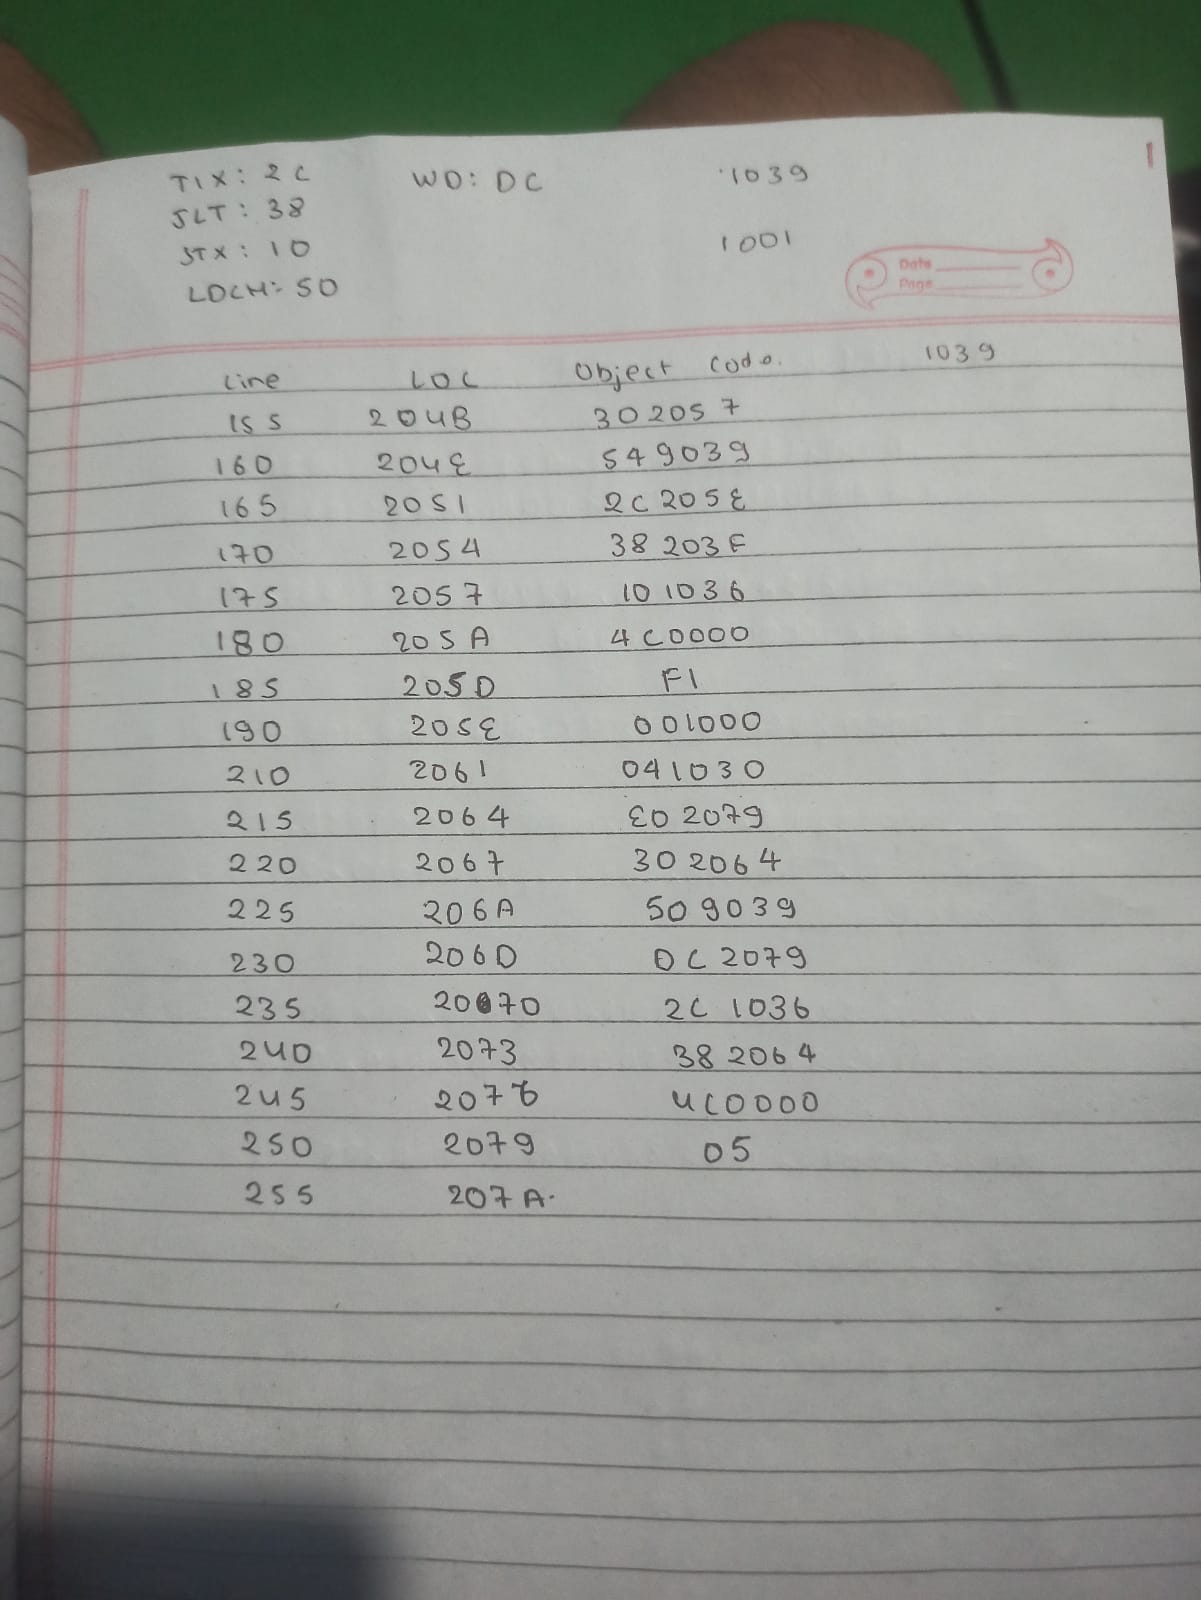 TIX: 2C WD: DC 1039
JLT: 38
STX: 10 1001
LDCH: 50
Date
Page
Line LOC Object Code. 1039
155 204B 302057
160 204E 549039
165 2051 2C205E
170 2054 38203F
175 2057 101036
180 205A 4C0000
185 205D F1
190 205E 001000
210 2061 041030
215 2064 E02079
220 2067 302064
225 206A 509039
230 206D DC2079
235 2070 2C1036
240 2073 382064
245 2076 4C0000
250 2079 05
255 207A.